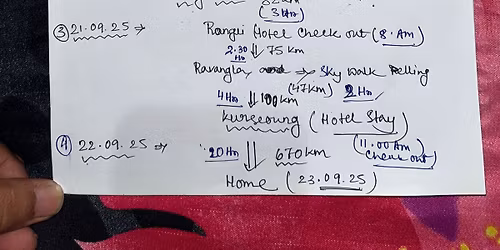 (3 Hr)
③ 21.09.25 ⇒ Rangli Hotel Check out (8. Am)
2.30 Hr ⇓ 75 km
Ravangla, ⇒ Sky Walk Pelling
(47km) 2 Hr
4 Hr ⇓ 100 km
Kurseoung (Hotel Stay)
④ 22.09.25 ⇒ (11.00 Am) Check out
20 Hr ⇓ 670 km
Home (23.09.25)